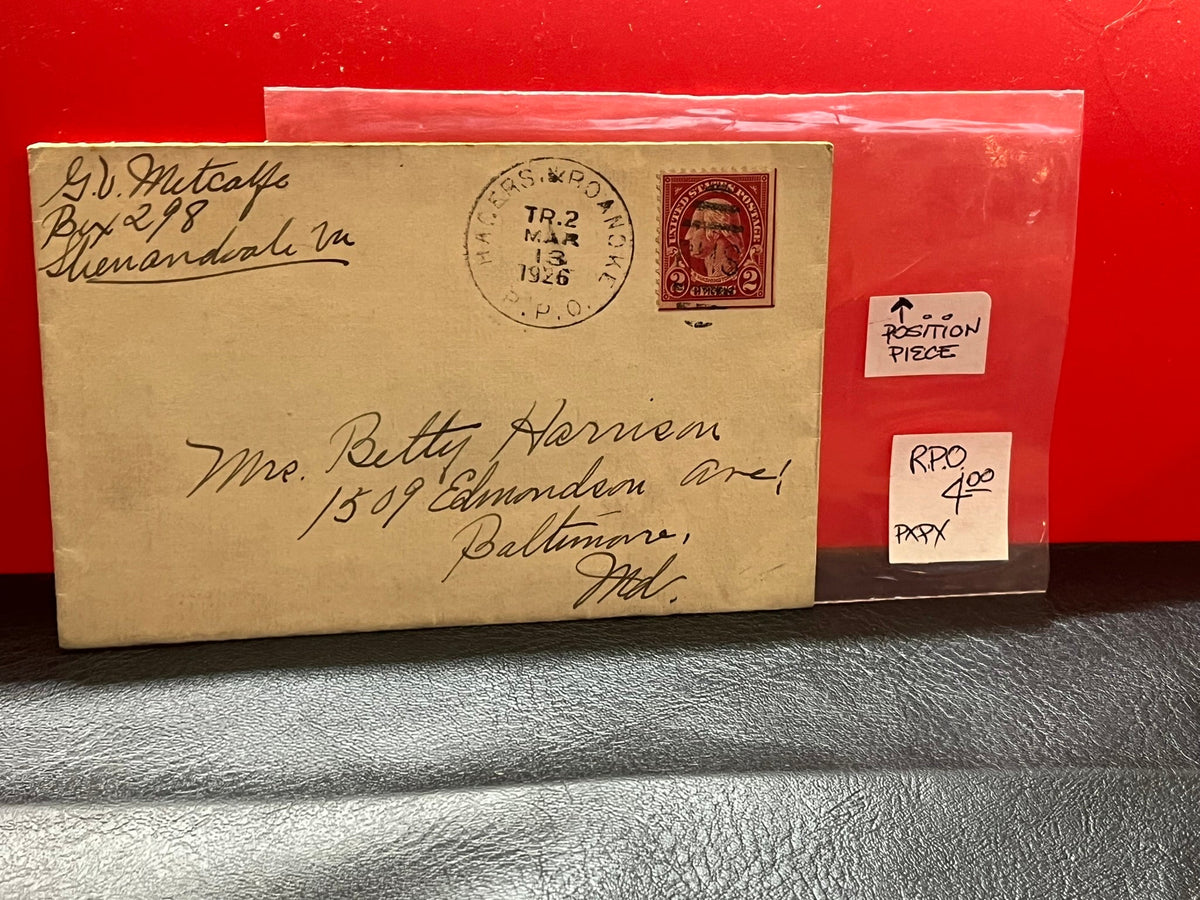 G.V. Metcalfe
Box 298
Shenandoah Va
HAGERS. & ROANOKE
TR.2
MAR
13
1926
R.P.O.
UNITED STATES POSTAGE
2 CENTS 2
Mrs. Betty Harrison
1509 Edmondson Ave,
Baltimore,
Md.
POSITION
PIECE
R.P.O.
4.00
PXPX